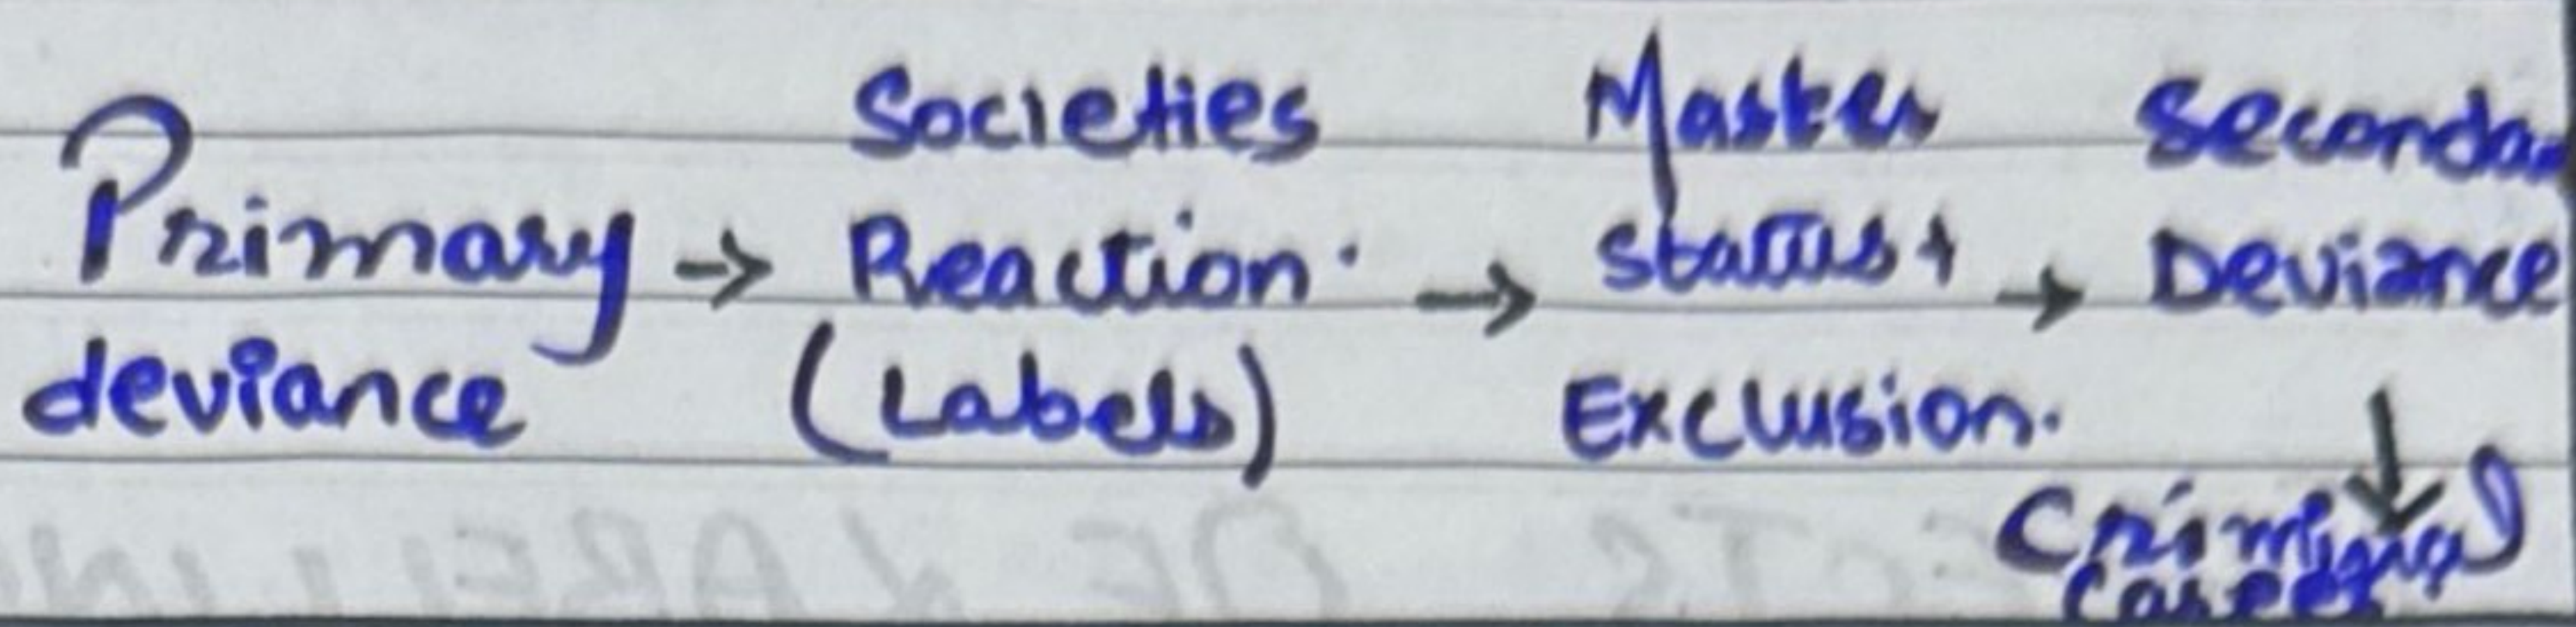 Primary
deviance
→
Societies
Reaction.
(Labels)
→
Master
Status +
Exclusion.
→
Seconda
Deviance
↓
Criminal
Career